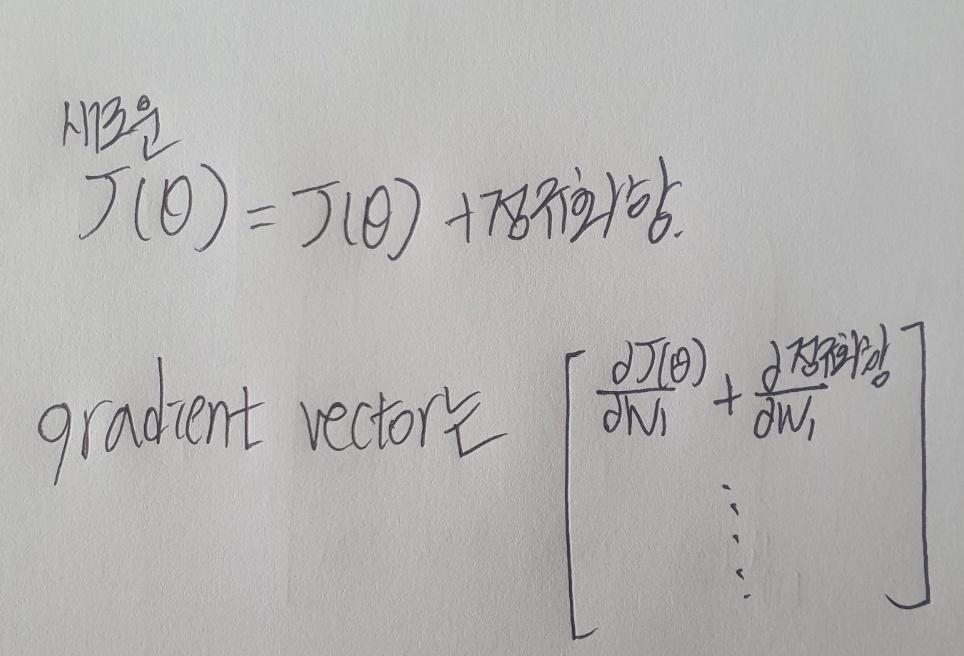 새로운
J(θ) = J(θ) + 정규화항.
gradient vector는 [ ∂J(θ)/∂W₁ + ∂정규화항/∂W₁
⋮ ]